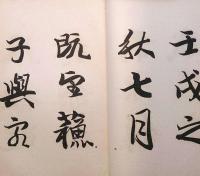 壬戌之
秋七月
既望蘇
子與客